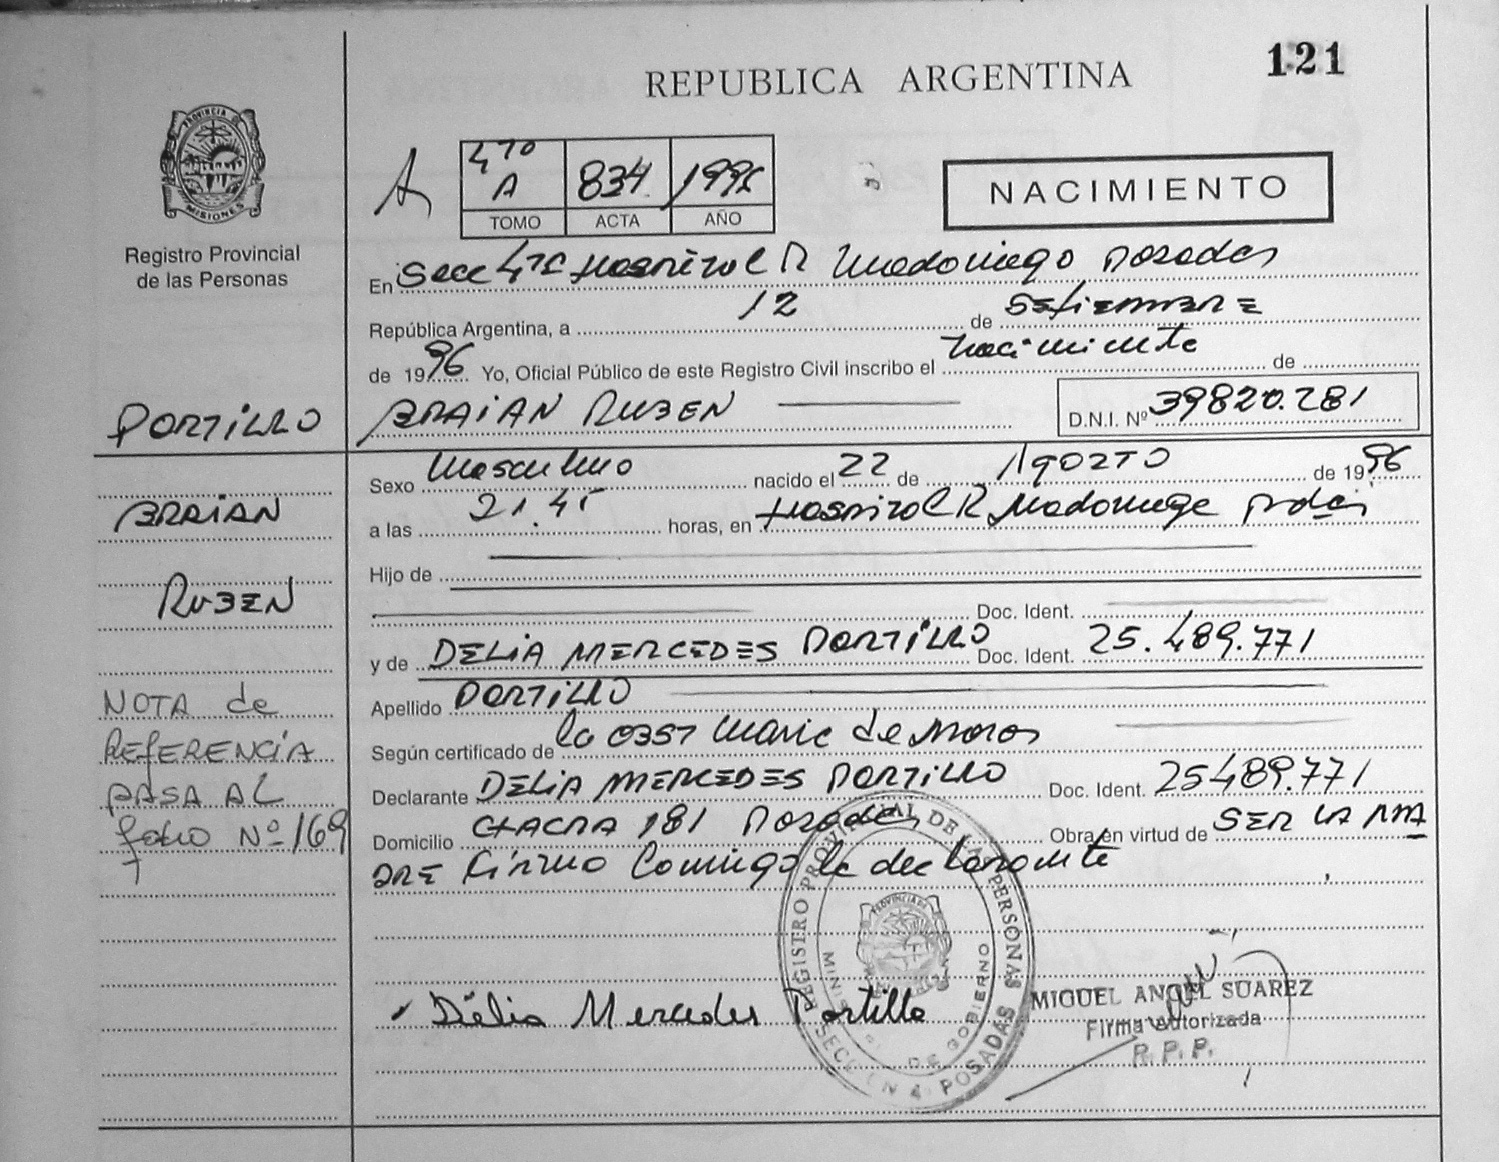 121
REPUBLICA ARGENTINA
PROVINCIA DE
MISIONES
Registro Provincial
de las Personas
A
4TO A 834 1996
TOMO ACTA AÑO
NACIMIENTO
En Secc 4ta Hospital R Madariaga Posadas
República Argentina, a 12 de Setiembre
de 1996 Yo, Oficial Público de este Registro Civil inscribo el nacimiento de
PORTILLO
BRAIAN RUBEN D.N.I. Nº 39820.281
Sexo Masculino nacido el 22 de Agosto de 1996
BRAIAN
a las 21.45 horas, en Hospital R Madariaga Pdas
Hijo de
RUBEN
Doc. Ident.
y de DELIA MERCEDES PORTILLO Doc. Ident. 25.489.771
NOTA de
REFERENCIA
PASA AL
folio Nº 169
Apellido PORTILLO
Según certificado de la 0357 Marie de
Declarante DELIA MERCEDES PORTILLO Doc. Ident. 25489.771
Domicilio CHACRA 181 Posadas Obra en virtud de SER LA MA
DRE Firmo Conmigo la declarante
REGISTRO PROVINCIAL DE LAS PERSONAS
PROVINCIA DE
DE GOBIERNO
POSADAS
Délia Mercedes Portillo
MIGUEL ANGEL SUAREZ
Firma Autorizada
R.P.P.